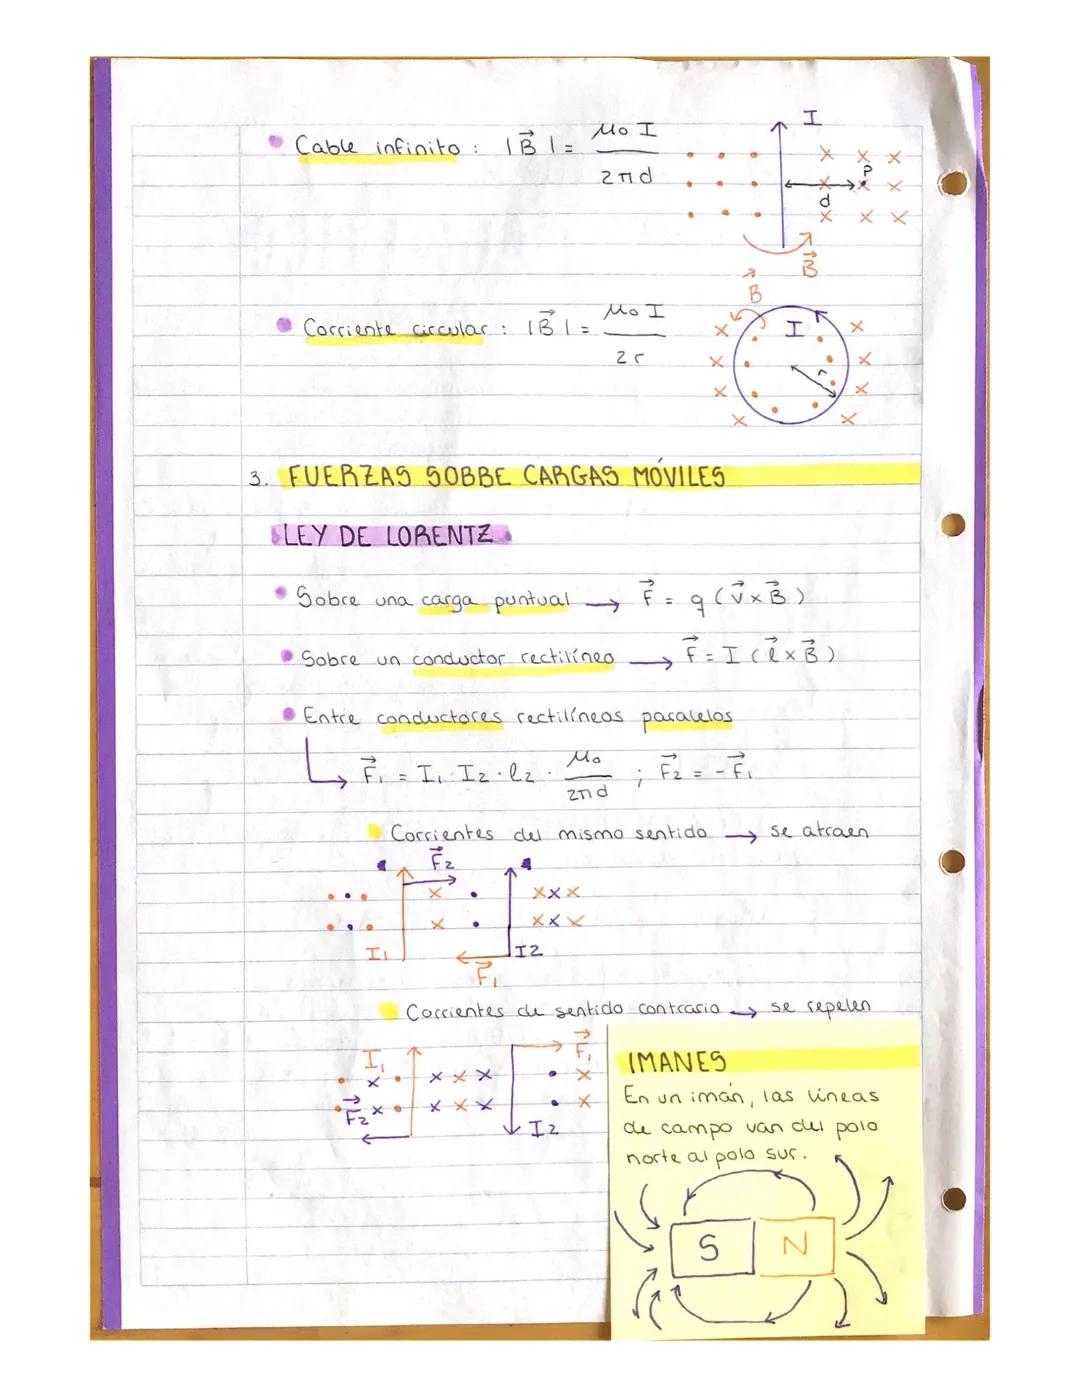 Cable infinito : |B⃗| = μ₀ I / 2πd
I
P
d
B⃗
B⃗
Corriente circular : |B⃗| = μ₀ I / 2r
I
r
3. FUERZAS SOBRE CARGAS MÓVILES
LEY DE LORENTZ
Sobre una carga puntual → F⃗ = q (v⃗ × B⃗)
Sobre un conductor rectilíneo → F⃗ = I (l⃗ × B⃗)
Entre conductores rectilíneos paralelos
↳ F⃗₁ = I₁ · I₂ · l₂ · μ₀ / 2πd ; F⃗₂ = - F⃗₁
Corrientes del mismo sentido → se atraen
F⃗₂
I₁
I2
F⃗₁
Corrientes de sentido contrario → se repelen
I₁
F⃗₁
F⃗₂
I2
IMANES
En un imán, las líneas
de campo van del polo
norte al polo sur.
S N